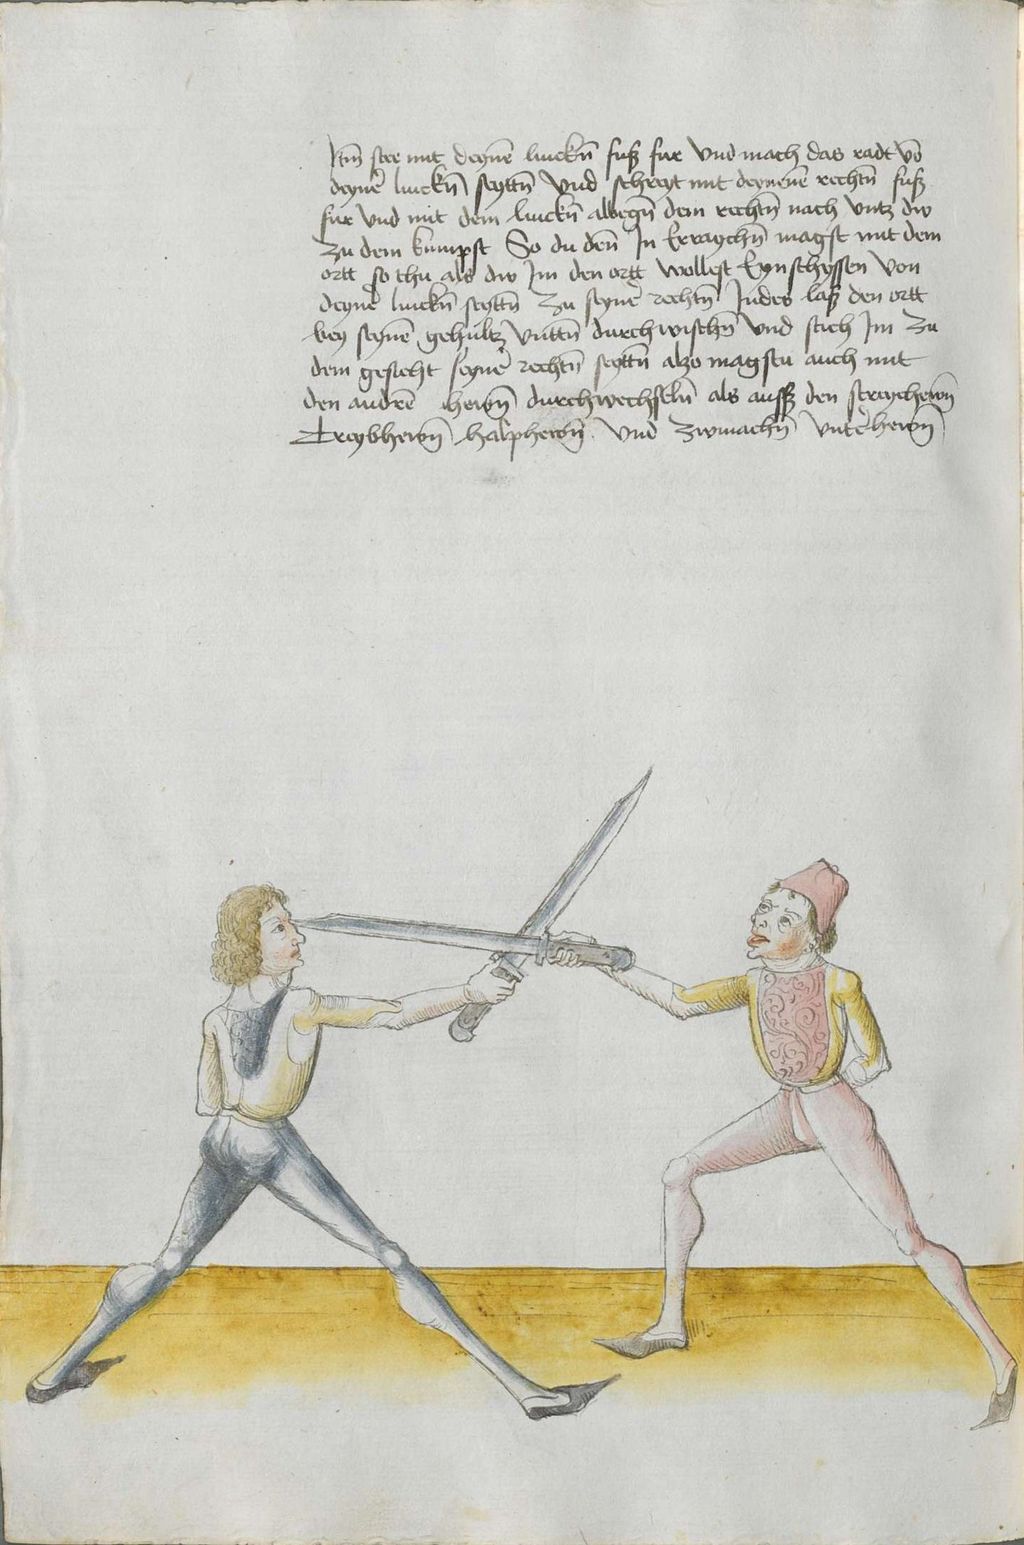 Itm̄ stee mit deynē linckñ fusß fur Vnd mach das radt võ
deynẽ linckñ seyttñ Vnd schreyt mit deynenē rechtñ fusß
fur Vnd mit dem linckñ albegñ dem rechtñ nach vntz dw
Zu dem kumpst So du deñ In Erraychñ magst mit dem
ortt so thu als dw Im den ortt wollest Eynschyssen von
deynẽ linckñ seyttñ Zu seynẽ rechtñ Indes lasß den ortt
bey seynē gehultz Vnttñ durchwischñ Vnd stich Im Zu
dem gesicht seynẽ rechtñ seyttñ alzo magstu auch mit
den andrē hewñ durchwechselñ als ausß den streychewñ
Treybhewñ halphewñ Vnd Zwmachñ Vnterhewñ